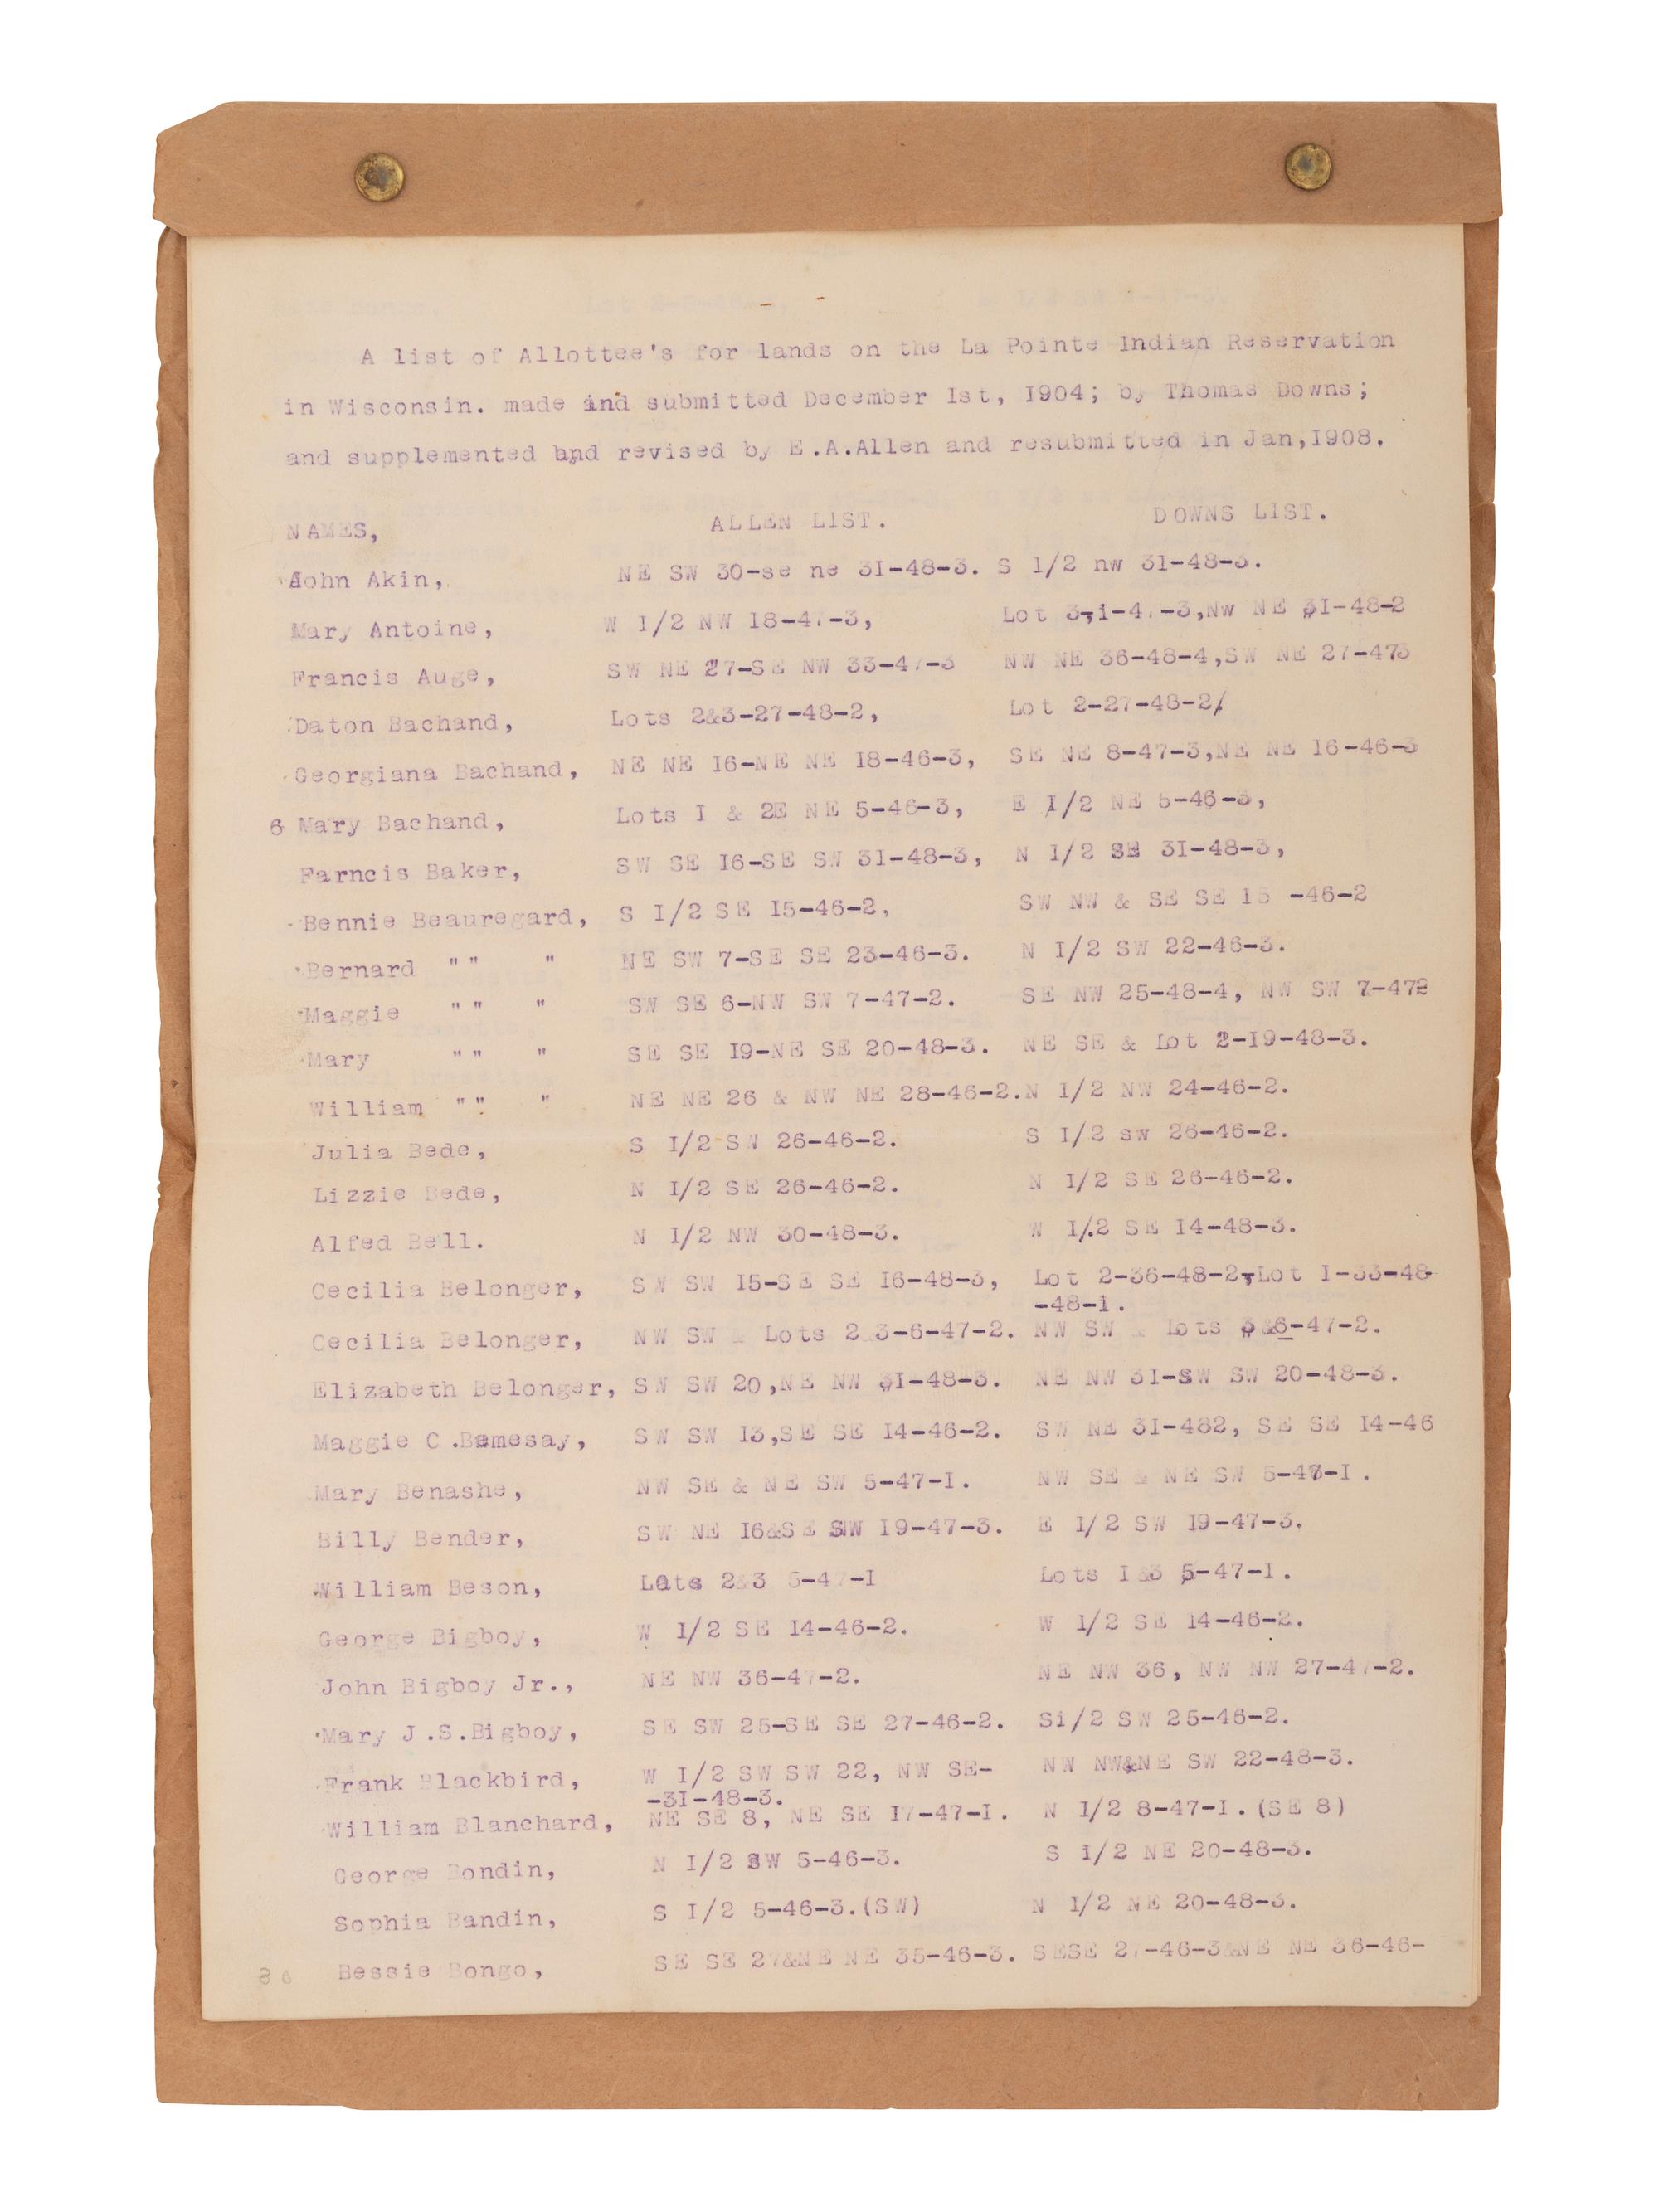 A list of Allottee's for lands on the La Pointe Indian Reservation
in Wisconsin. made and submitted December 1st, 1904; by Thomas Downs;
and supplemented and revised by E.A.Allen and resubmitted in Jan,1908.
NAMES, ALLEN LIST. DOWNS LIST.
John Akin, NE SW 30-se ne 31-48-3. S 1/2 nw 31-48-3.
Mary Antoine, W 1/2 NW 18-47-3, Lot 3-1-47-3,Nw NE 31-48-2
Francis Auge, SW NE 27-SE NW 33-47-3 NW NE 36-48-4,SW NE 27-473
Daton Bachand, Lots 2&3-27-48-2, Lot 2-27-48-2/
Georgiana Bachand, NE NE 16-NE NE 18-46-3, SE NE 8-47-3,NE NE 16-46-3
6 Mary Bachand, Lots I & 2E NE 5-46-3, E 1/2 NE 5-46-3,
Farncis Baker, SW SE 16-SE SW 31-48-3, N 1/2 SE 31-48-3,
Bennie Beauregard, S 1/2 SE 15-46-2, SW NW & SE SE 15 -46-2
Bernard "" " NE SW 7-SE SE 23-46-3. N 1/2 SW 22-46-3.
Maggie "" " SW SE 6-NW SW 7-47-2. SE NW 25-48-4, NW SW 7-472
Mary "" " SE SE 19-NE SE 20-48-3. NE SE & Lot 2-19-48-3.
William "" " NE NE 26 & NW NE 28-46-2. N 1/2 NW 24-46-2.
Julia Bede, S 1/2 SW 26-46-2. S 1/2 sw 26-46-2.
Lizzie Bede, N 1/2 SE 26-46-2. N 1/2 SE 26-46-2.
Alfed Bell. N 1/2 NW 30-48-3. W 1/.2 SE 14-48-3.
Cecilia Belonger, SW SW 15-SE SE 16-48-3, Lot 2-36-48-2,Lot 1-33-48
-48-1.
Cecilia Belonger, NW SW & Lots 2&3-6-47-2. NW SW & Lots 3&6-47-2.
Elizabeth Belonger, SW SW 20,NE NW 31-48-3. NE NW 31-SW SW 20-48-3.
Maggie C.Bemesay, SW SW 13,SE SE 14-46-2. SW NE 31-482, SE SE 14-46
Mary Benashe, NW SE & NE SW 5-47-I. NW SE & NE SW 5-47-I.
Billy Bender, SW NE 16&SE NW 19-47-3. E 1/2 SW 19-47-3.
William Beson, Lots 2&3 5-47-I Lots I&3 5-47-I.
George Bigboy, W 1/2 SE 14-46-2. W 1/2 SE 14-46-2.
John Bigboy Jr., NE NW 36-47-2. NE NW 36, NW NW 27-47-2.
Mary J.S.Bigboy, SE SW 25-SE SE 27-46-2. Si/2 SW 25-46-2.
Frank Blackbird, W 1/2 SW SW 22, NW SE- NW NW&NE SW 22-48-3.
-31-48-3.
William Blanchard, NE SE 8, NE SE 17-47-I. N 1/2 8-47-I.(SE 8)
George Bondin, N 1/2 SW 5-46-3. S 1/2 NE 20-48-3.
Sophia Bandin, S 1/2 5-46-3.(SW) N 1/2 NE 20-48-3.
30 Bessie Bongo, SE SE 27&NE NE 35-46-3. SESE 27-46-3&NE NE 36-46-